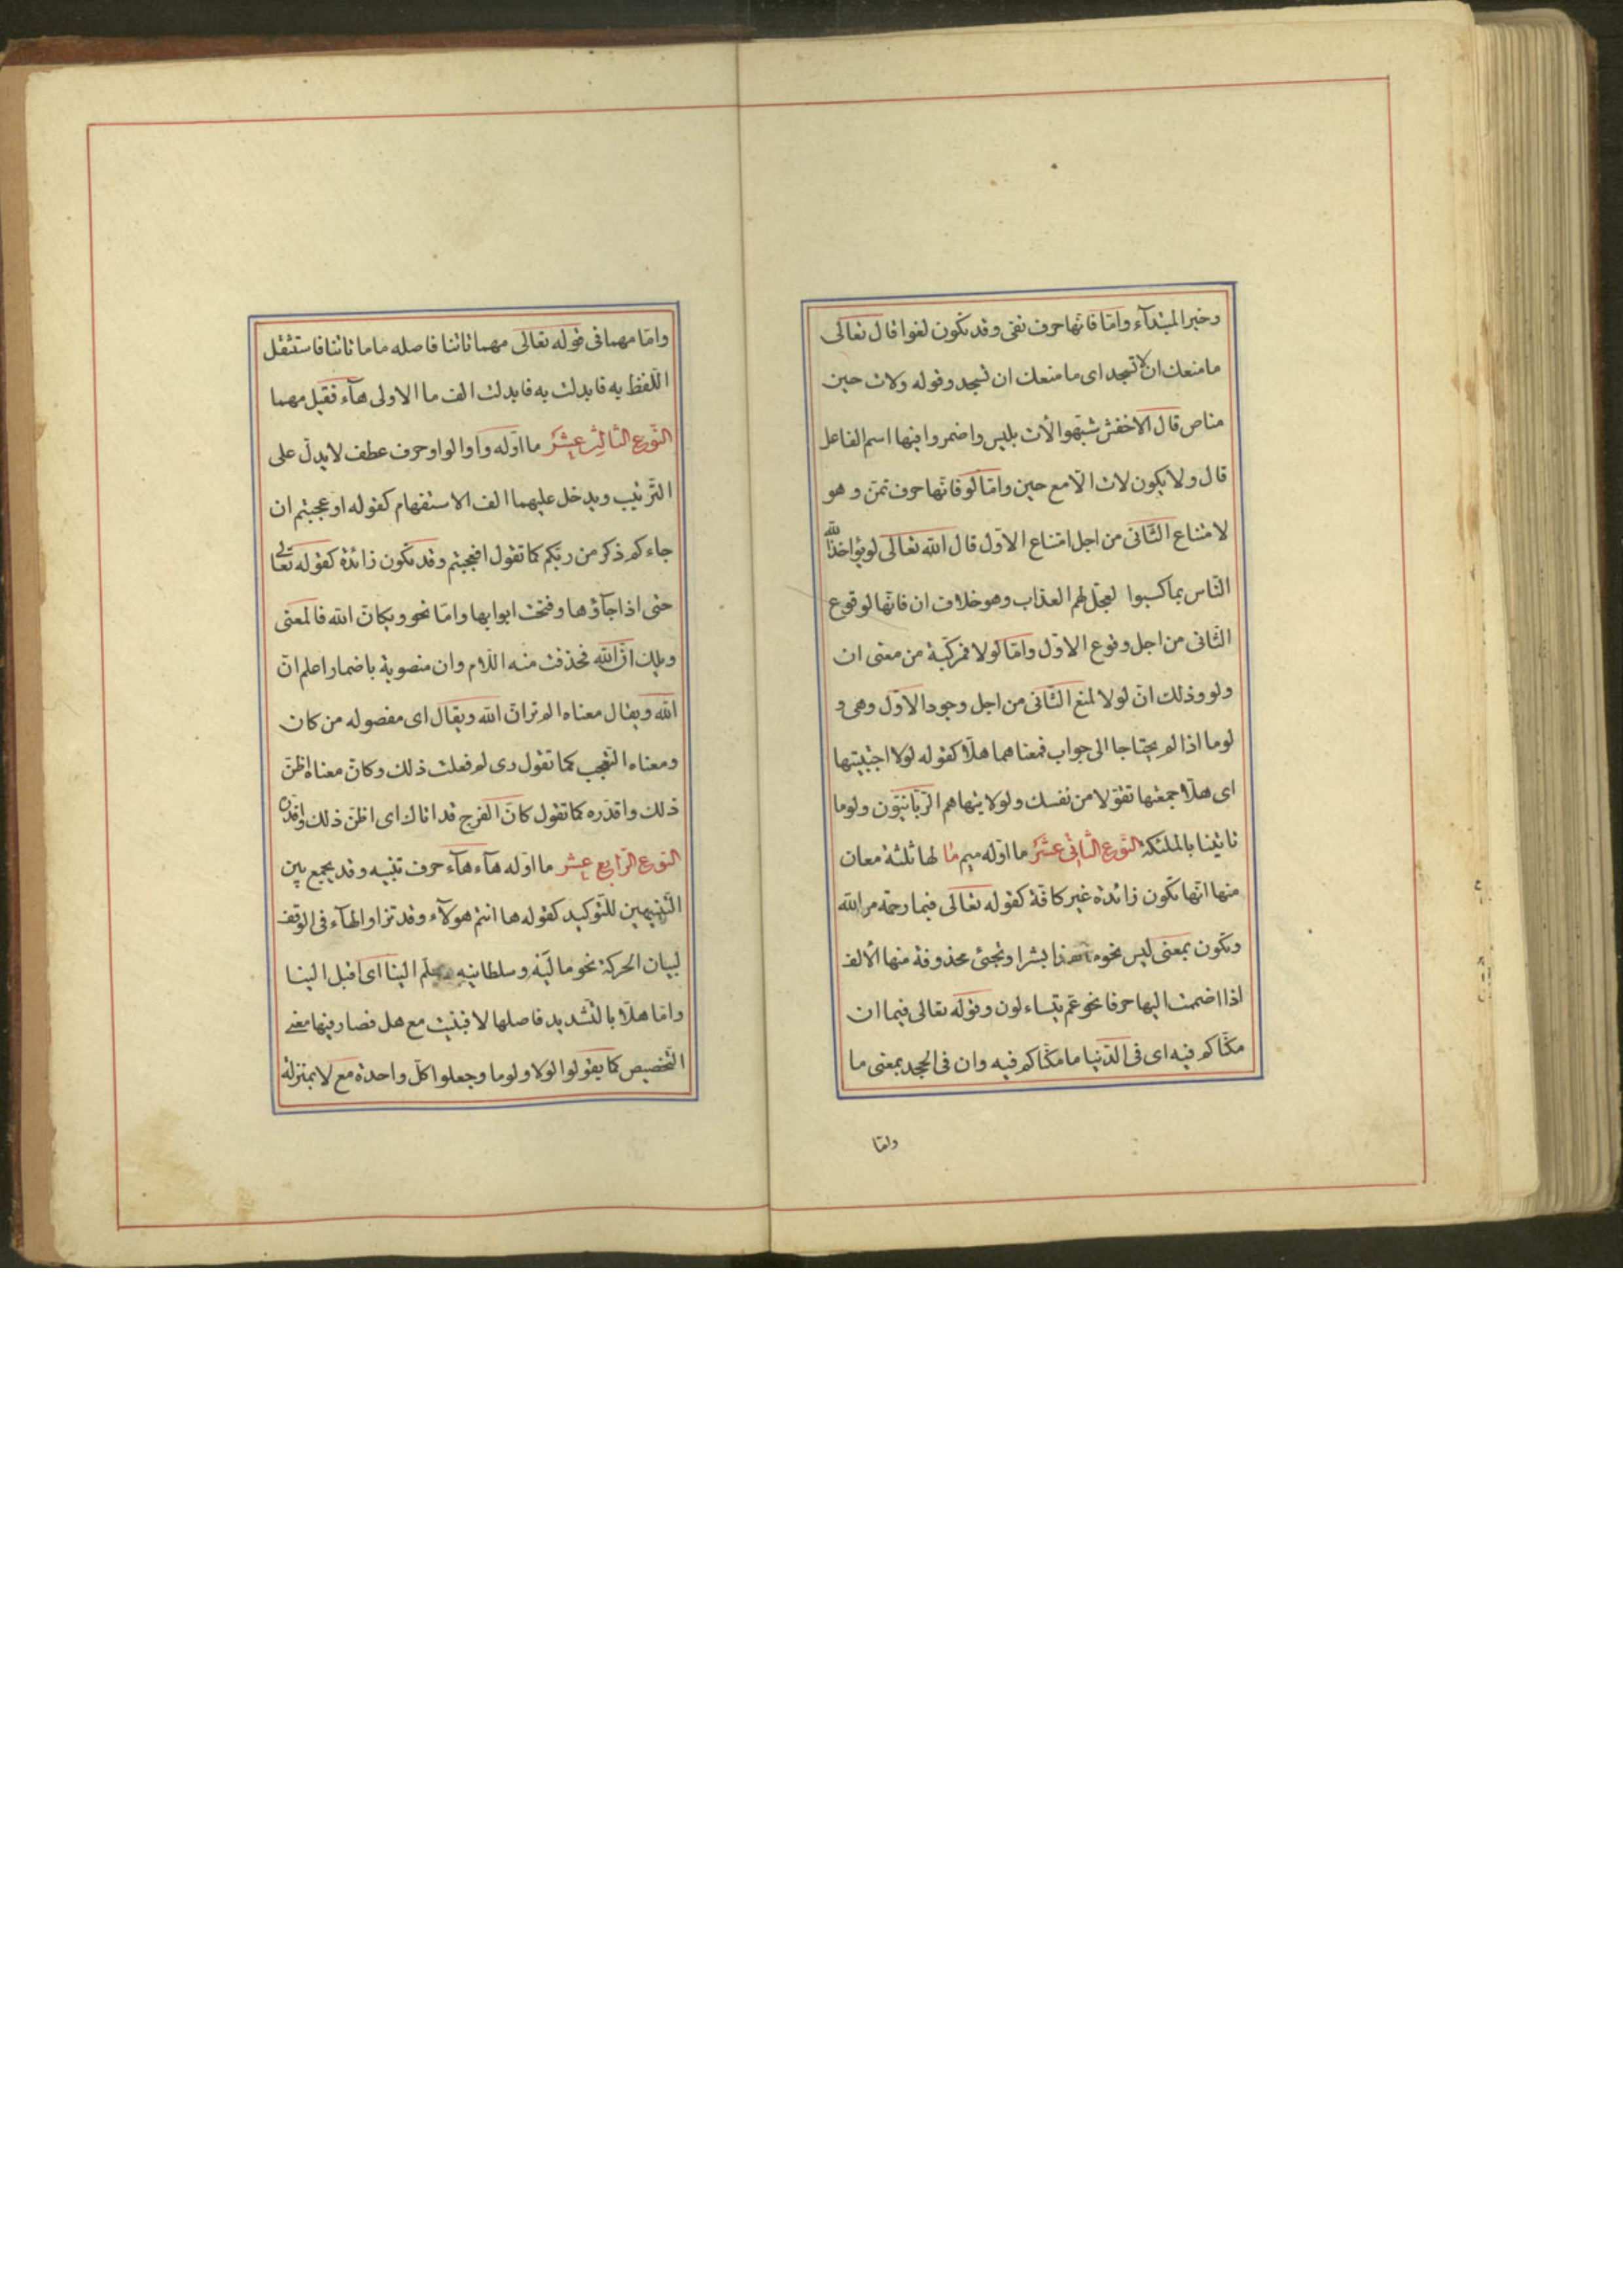 وخبر المبتدآء وامّا فانّها حرف نفى وقد تكون لغوا قال تعالى
ما منعك ان لا تسجد اى ما منعك ان تسجد وقوله ولات حين
مناص قال الاخفش شبّهوا لات بليس واضمروا فيها اسم الفاعل
قال ولا يكون لات الّا مع حين وامّا لو فانّها حرف تمنّ وهو
لامتناع الثّانى من اجل امتناع الاوّل قال الله تعالى لو يؤاخذ الله
النّاس بما كسبوا لعجّل لهم العذاب وهو خلاف ان فانّها لوقوع
الثّانى من اجل وقوع الاوّل وامّا لولا فمركّبة من معنى ان
ولو وذلك انّ لولا لمنع الثّانى من اجل وجود الاوّل وهى و
لوما اذا لم يحتاجا الى جواب فمعناهما هلّا كقوله لولا اجتبيتها
اى هلّا جمعتها تقوّلا من نفسك ولولا ينهاهم الرّبّانيّون ولوما
تاتينا بالملئكة النّوع الثّانى عشر ما اوّله ميم ما لها ثلثة معان
منها انّها تكون زائدة غير كافّة كقوله تعالى فبما رحمة من الله
وتكون بمعنى ليس نحو ما هذا بشرا وتجئ محذوفة منها الالف
اذا اضممت اليها حرفا نحو عمّ يتساءلون وقوله تعالى فيما ان
مكّنّاكم فيه اى فى الدّنيا ما مكّنّاكم فيه وان فى الجحد بمعنى ما
وامّا
وامّا مهما فى قوله تعالى مهما تاتنا فاصله ما ما تاتنا فاستثقل
اللّفظ به فابدلت به فابدلت الف ما الاولى هآء فقيل مهما
النّوع الثّالث عشر ما اوّله واو الواو حرف عطف لا يدلّ على
التّرتيب ويدخل عليهما الف الاستفهام كقوله اوعجبتم ان
جاءكم ذكر من ربّكم كما تقول افعجبتم وقد تكون زائدة كقوله تعالى
حتى اذا جآؤها وفتحت ابوابها وامّا نحو ويكانّ الله فالمعنى
ويلك انّ الله فحذفت منه اللّام وان منصوبة باضمار اعلم انّ
الله ويقال معناه الم تر انّ الله ويقال اى مفصوله من كان
ومعناه التّعجب كما تقول وى لم فعلت ذلك وكانّ معناه اظنّ
ذلك واقدّره كما تقول كانّ الفرج قد اتاك اى اظنّ ذلك واقدّره
النّوع الرّابع عشر ما اوّله هآء هآء حرف تنبيه وقد يجمع بين
التّنبيهين للتّوكيد كقوله ها انتم هولآء وقد تزاد الهآء فى الوقف
لبيان الحركة نحو ماليه وسلطانيه هلمّ الينا اى اقبل الينا
وامّا هلّا بالتّشديد فاصلها لا فبنيت مع هل فصار فيها معنى
التّخصيص كما يقولوا لولا ولوما وجعلوا كلّ واحدة مع لا بمنزلة